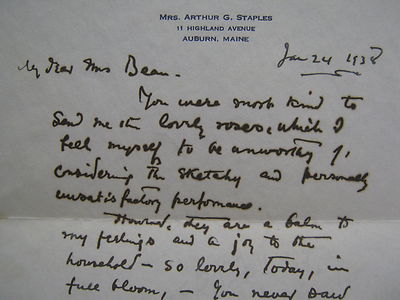 MRS. ARTHUR G. STAPLES
11 HIGHLAND AVENUE
AUBURN, MAINE
Jan 24 1938
My Dear Mrs Bean.
You were most kind to
send me the lovely roses, which I
feel myself to be unworthy of,
considering the sketchy and personally
unsatisfactory performance.
However, they are a balm to
my feelings and a joy to the
household – so lovely, today, in
full bloom, – You never said